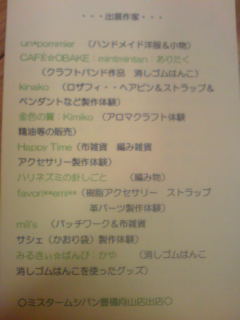 ・・・出展作家・・・
un*pommier　（ハンドメイド洋服＆小物）
CAFE☆OBAKE：mintmintan：ありたく
（クラフトバンド作品　消しゴムはんこ）
kinako　（ロザフィ・・ヘアピン＆ストラップ＆
ペンダントなど製作体験）
金色の翼：Kimiko　（アロマクラフト体験
精油等の販売）
Happy Time（布雑貨　編み雑貨
アクセサリー製作体験）
ハリネズミの針しごと　　（編み物）
favori**emi**（樹脂アクセサリー　ストラップ
革パーツ製作体験）
mili's　（パッチワーク＆布雑貨
サシェ（かおり袋）製作体験）
みるさぃ☆ばんび：かや　（消しゴムはんこ
消しゴムはんこを使ったグッズ）
〇ミスタームシパン豊橋向山店出店〇